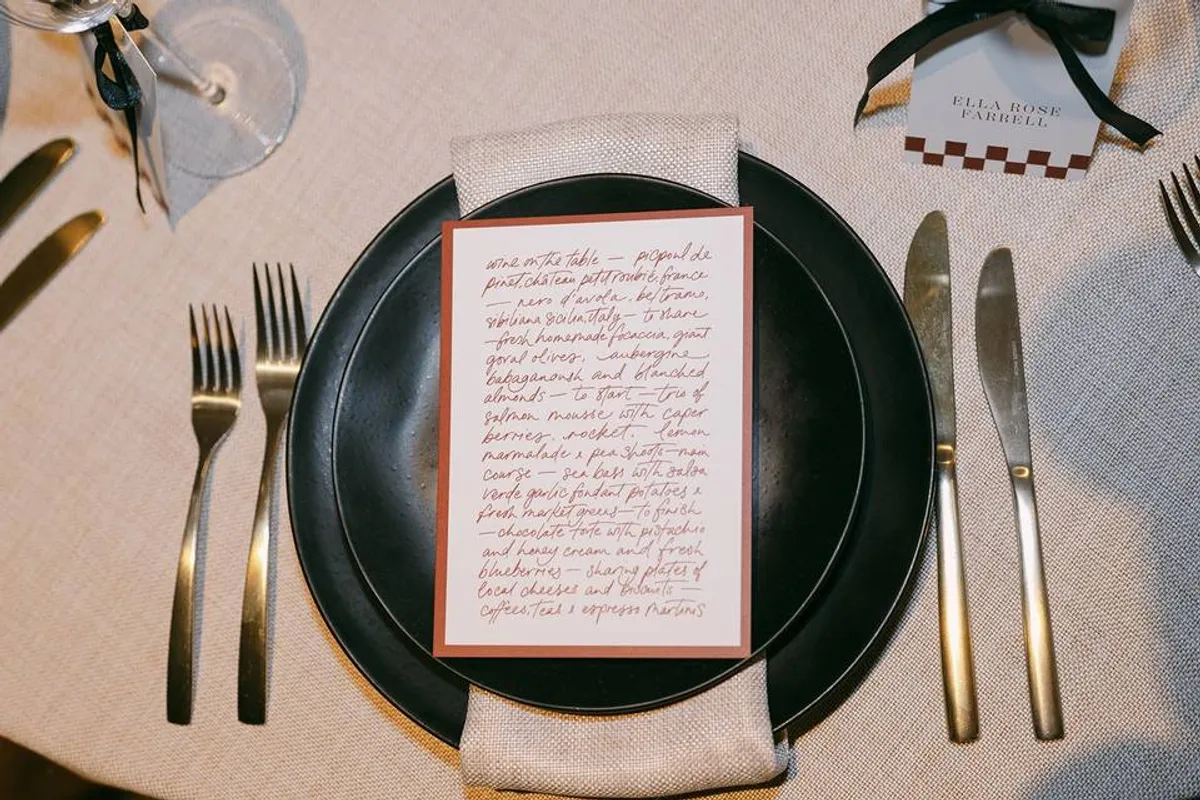 ELLA ROSE
FARRELL
wine on the table — picpoul de
pinet, chateau petit roubié, france
— nero d'avola, beltramo,
sibiliana sicilia, italy — to share
— fresh homemade focaccia, giant
goral olives, aubergine
babaganoush and blanched
almonds — to start — trio of
salmon mousse with caper
berries, rocket, lemon
marmalade & pea shoots — main
course — sea bass with salsa
verde garlic fondant potatoes &
fresh market greens — to finish
— chocolate torte with pistachio
and honey cream and fresh
blueberries — sharing plates of
local cheeses and biscuits —
coffees, teas & espresso martinis